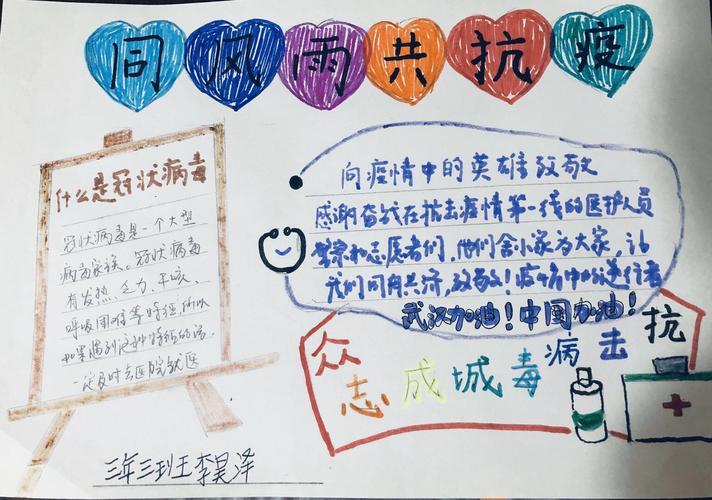 同风雨共抗疫
什么是冠状病毒
冠状病毒是一个大型
病毒家族。冠状病毒
有发热、乏力、干咳、
呼吸困难等特征,所以
如果遇到这种特征的话
一定及时去医院就医
向疫情中的英雄致敬
感谢奋战在抗击疫情第一线的医护人员
警察和志愿者们,他们舍小家为大家,让
我们同舟共济,致敬!疫情中的逆行者
武汉加油!中国加油!
众志成城毒病击抗
三年三班王李昊泽